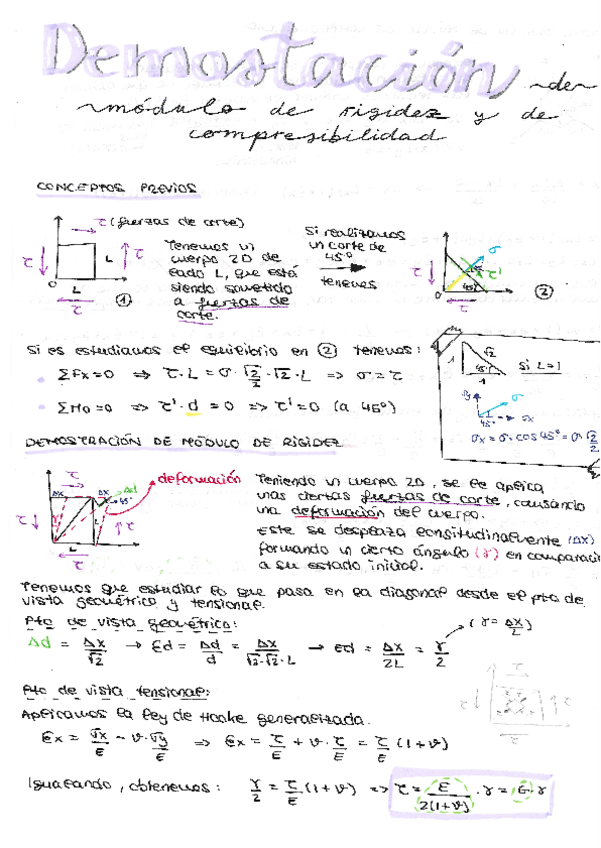 Demostación de
módulo de rigidez y de
compresibilidad
CONCEPTOS PREVIOS
τ (fuerzas de corte)
τ
τ
L
0
L
τ
①
Tenemos un
cuerpo 2D de
lado L, que está
siendo sometido
a fuerzas de
corte.
Si realizamos
un corte de
45º
tenemos
τ
σ
τ'
45º
0
τ
②
Si es estudiamos el equilibrio en ② tenemos:
ΣFx = 0 ⇒ τ · L = σ · √2/2 · √2 · L ⇒ σ = τ
ΣMo = 0 ⇒ τ' · d = 0 ⇒ τ' = 0 (a 45º)
1
√2
45º
1
si L=1
σ
45º
σx
σx = σ · cos 45º = σ √2/2
DEMOSTRACIÓN DE MÓDULO DE RIGIDEZ
τ
Δx
Δx
Δd
45º
deformación
τ
L
τ
L
τ
Teniendo un cuerpo 2D, se le aplica
unas ciertas fuerzas de corte, causando
una deformación del cuerpo.
Este se desplaza longitudinalmente (Δx)
formando un cierto ángulo (γ) en comparació
a su estado inicial.
Tenemos que estudiar lo que pasa en la diagonal desde el pto de
vista geométrico y tensional.
Pto de vista geométrico:
(γ = Δx/L)
Δd = Δx/√2 → Ed = Δd/d = Δx/√2·√2·L → Ed = Δx/2L = γ/2
Pto de vista tensional:
Aplicamos la ley de Hooke generalizada.
Ex = σx/E - ν · σy/E ⇒ Ex = τ/E + ν · τ/E = τ/E (1+ν)
τ
τ
τ
τ
Igualando, obtenemos: γ/2 = τ/E (1+ν) ⇒ τ = E/2(1+ν) · γ = G · γ